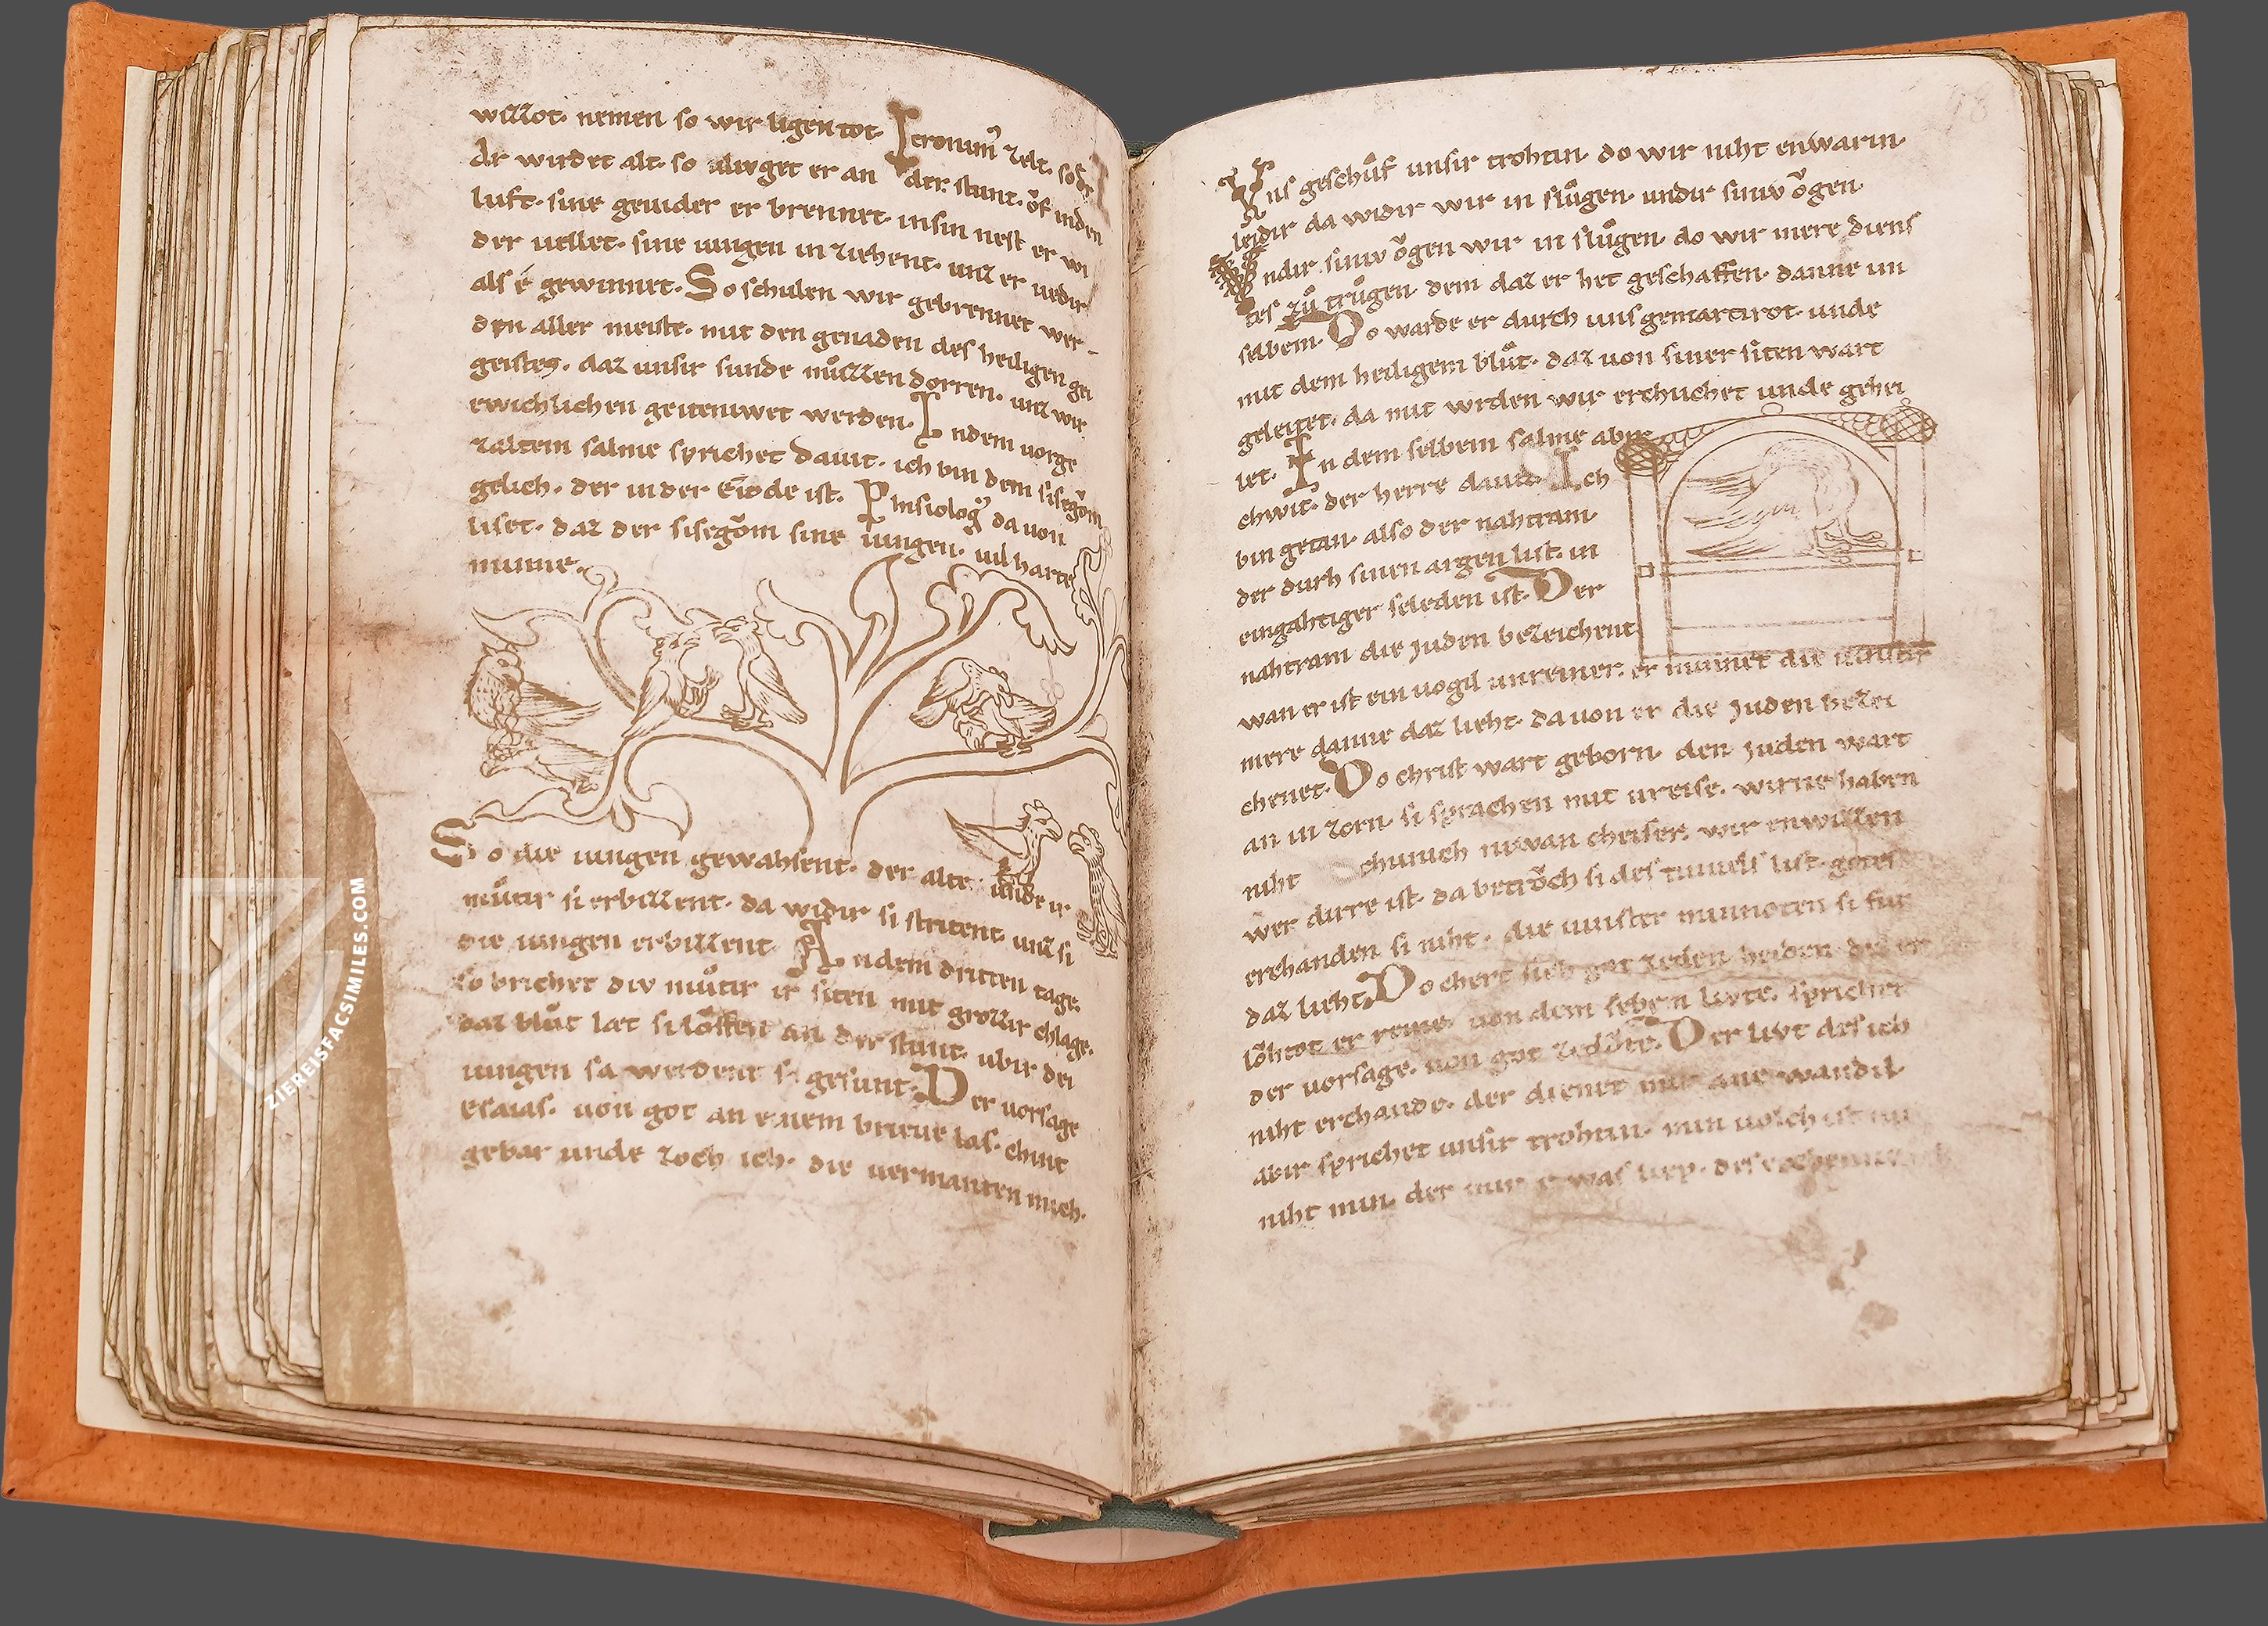 wizzot· nemen so wir ligen tot· Ieronim᷒ zelt· so d᷒
Ar wirdet alt· so uliwget er an der stunt· ŏf inden
luft· sine geuider er brennet· insin nest er wi
der uellet· sine iungen in ziehent· unz er uedir
als é gewinnet· So schulen wir gebrennet wer-
den aller meiste· mit den genaden des heiligen gei
geistes· daz unsir sunde můzzen dorren· unz wir
ewichlichen geiteniwet werden· In dem uorge
zaltem salme sprichet Dauit· ich bin dem sisegŏm
gelich· der in der Eîode ist· Phisiolog᷒ da uon
liset· daz der sisegŏm sine iungen· uil harte
minne·
So die iungen gewahsent· der alte· unde ir
můtir si erbizzent· da widir si stritent· unz si
die iungen erbizzent· An dem dritten tage·
so brichet div můtir ir siten mit grozzir chlage·
daz blůt læt si lŏffen an der stunt· ubir dei
iungen sa werdent si gesunt· Der uorsage
Esaias· uon got an einem brieue las· chint
gebar unde zoch ich· die uermanten mich·
Uns geschůf unsir trohtin· do wir niht enwarin·
leidir da widir wir in slůgen· undir siniv ŏgen·
Undir siniv ŏgen wir in slůgen· do wir mere diens
tes zů trůgen· dem daz er het geschaffen· danne im
selbem· Do warde er durch uns gemartirot· unde
mit dem heiligem blůt· daz uon siner siten wart
geleitet· da mit wrden wir erchuchet unde gehei
let· In dem selbem salme abir
chwit· der herre dauit· Ich
bin getan· also der nahtram·
der durh sinen argen list· in
eingahtiger seleden ist· Der
nahtram die Juden bezeichent·
wan er ist ein uogil unreiner· er minnet die uinstir
mere danne daz lieht· da uon er die Juden bezei
chenet· Do christ wart geborn· den Juden wart
an in zorn· si sprachen mit ureise· wirne haben
niht chunich niwan cheiser· wir enwizzen
wer dirre ist· da betrŏch si des tiuuels list· gotes
erchanden si niht· die uinster minnoten si fur
daz lieht· Do chert sich got zeden heiden· die er
lŏhtot er reine· uon dem selbem livte· sprichet
der uorsage· uon got Der livt des ich
niht erchande· der dienet mir ane wandil·
abir sprichet unsir trohtin· min uolch ist nu
niht min· der mir e was liep·
ZIEREISFACSIMILES.COM